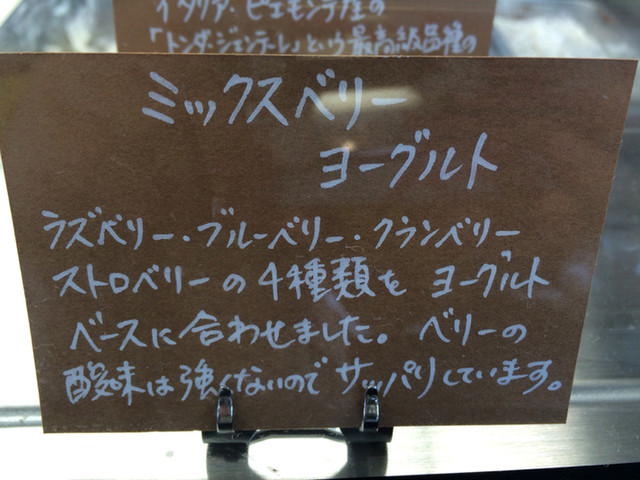 イタリア・ピエモンテ産の
「トンダ・ジェンティーレ」という最高級品種の
ミックスベリー
ヨーグルト
ラズベリー・ブルーベリー・クランベリー
ストロベリーの4種類を ヨーグルト
ベースに合わせました。ベリーの
酸味は強くないのでサッパリしています。